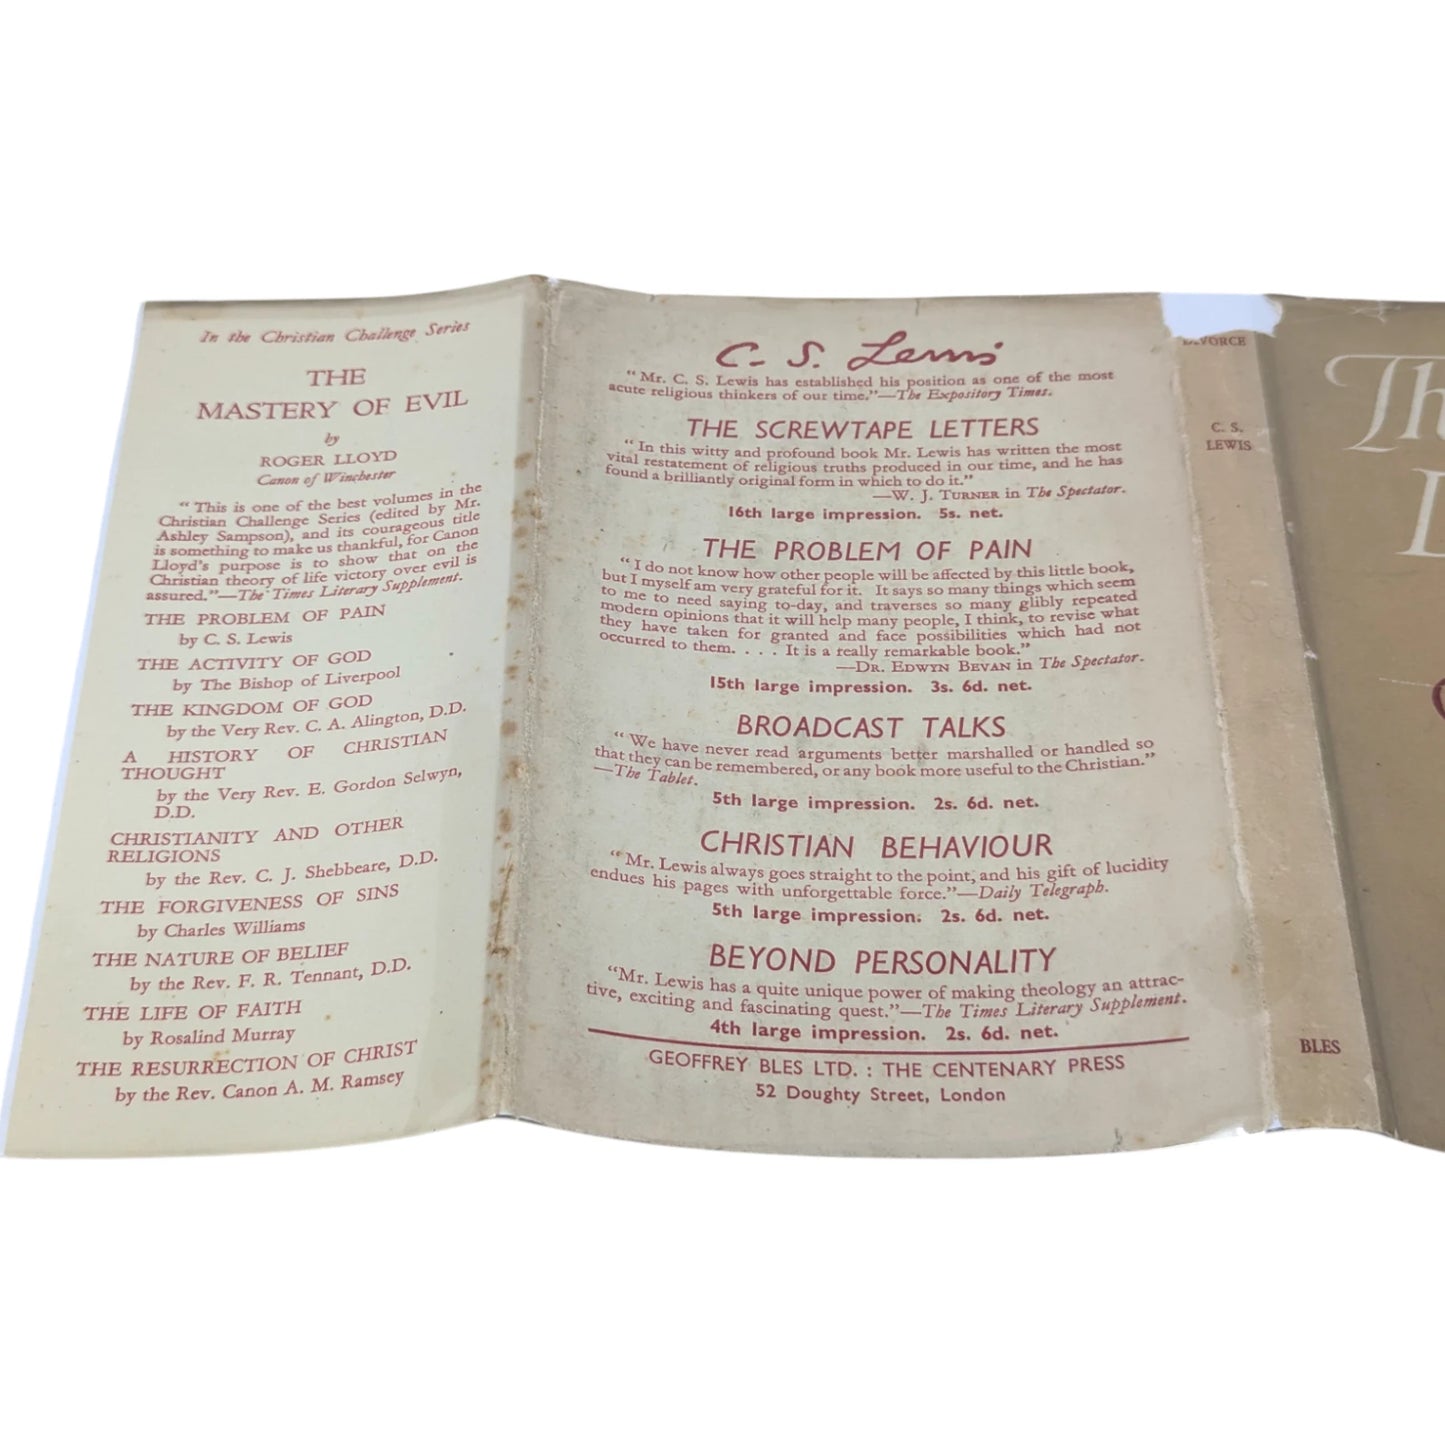 In the Christian Challenge Series
THE
MASTERY OF EVIL
by
ROGER LLOYD
Canon of Winchester
“This is one of the best volumes in the
Christian Challenge Series (edited by Mr.
Ashley Sampson), and its courageous title
is something to make us thankful, for Canon
Lloyd's purpose is to show that on the
Christian theory of life victory over evil is
assured.”—The Times Literary Supplement.
THE PROBLEM OF PAIN
by C. S. Lewis
THE ACTIVITY OF GOD
by The Bishop of Liverpool
THE KINGDOM OF GOD
by the Very Rev. C. A. Alington, D.D.
A HISTORY OF CHRISTIAN
THOUGHT
by the Very Rev. E. Gordon Selwyn,
D.D.
CHRISTIANITY AND OTHER
RELIGIONS
by the Rev. C. J. Shebbeare, D.D.
THE FORGIVENESS OF SINS
by Charles Williams
THE NATURE OF BELIEF
by the Rev. F. R. Tennant, D.D.
THE LIFE OF FAITH
by Rosalind Murray
THE RESURRECTION OF CHRIST
by the Rev. Canon A. M. Ramsey
C. S. Lewis
“Mr. C. S. Lewis has established his position as one of the most
acute religious thinkers of our time.”—The Expository Times.
THE SCREWTAPE LETTERS
“In this witty and profound book Mr. Lewis has written the most
vital restatement of religious truths produced in our time, and he has
found a brilliantly original form in which to do it.”
—W. J. TURNER in The Spectator.
16th large impression. 5s. net.
THE PROBLEM OF PAIN
“I do not know how other people will be affected by this little book,
but I myself am very grateful for it. It says so many things which seem
to me to need saying to-day, and traverses so many glibly repeated
modern opinions that it will help many people, I think, to revise what
they have taken for granted and face possibilities which had not
occurred to them. . . . It is a really remarkable book.”
—DR. EDWYN BEVAN in The Spectator.
15th large impression. 3s. 6d. net.
BROADCAST TALKS
“We have never read arguments better marshalled or handled so
that they can be remembered, or any book more useful to the Christian.”
—The Tablet.
5th large impression. 2s. 6d. net.
CHRISTIAN BEHAVIOUR
“Mr. Lewis always goes straight to the point, and his gift of lucidity
endues his pages with unforgettable force.”—Daily Telegraph.
5th large impression. 2s. 6d. net.
BEYOND PERSONALITY
“Mr. Lewis has a quite unique power of making theology an attrac-
tive, exciting and fascinating quest.”—The Times Literary Supplement.
4th large impression. 2s. 6d. net.
GEOFFREY BLES LTD. : THE CENTENARY PRESS
52 Doughty Street, London
DIVORCE
C. S.
LEWIS
BLES
Th
D